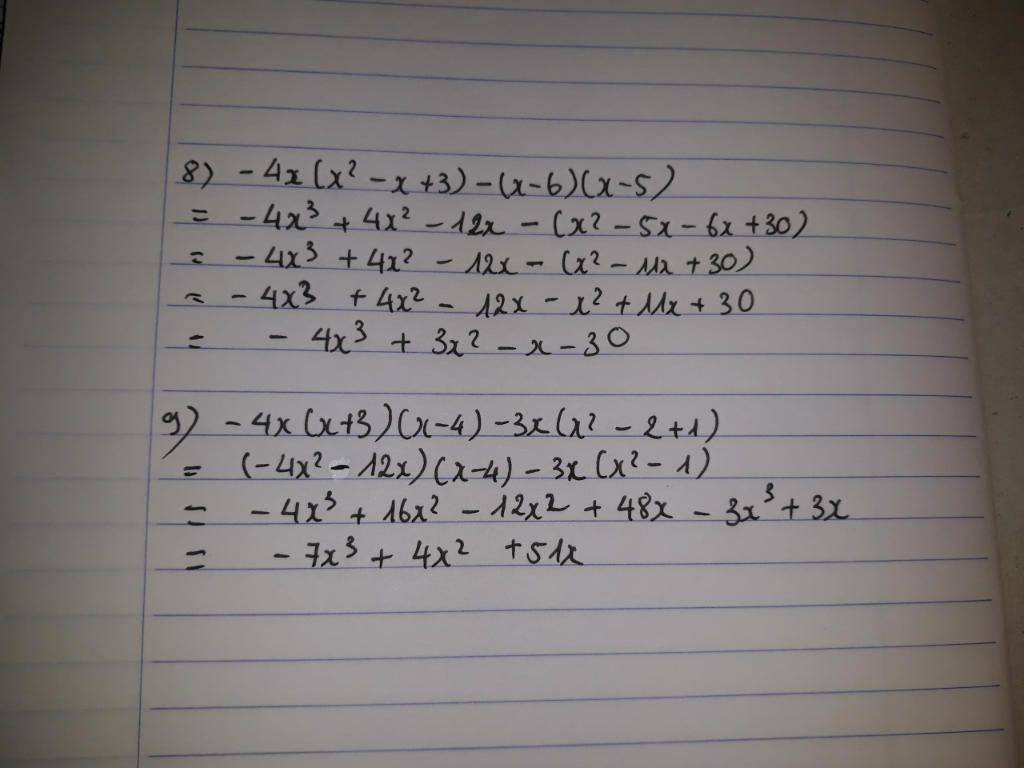 8) - 4x (x² - x + 3) - (x - 6)(x - 5)
= - 4x³ + 4x² - 12x - (x² - 5x - 6x + 30)
= - 4x³ + 4x² - 12x - (x² - 11x + 30)
= - 4x³ + 4x² - 12x - x² + 11x + 30
= - 4x³ + 3x² - x - 30
9) - 4x (x+3)(x-4) - 3x (x² - 2 + 1)
= (-4x² - 12x)(x-4) - 3x (x² - 1)
= - 4x³ + 16x² - 12x² + 48x - 3x³ + 3x
= - 7x³ + 4x² + 51x